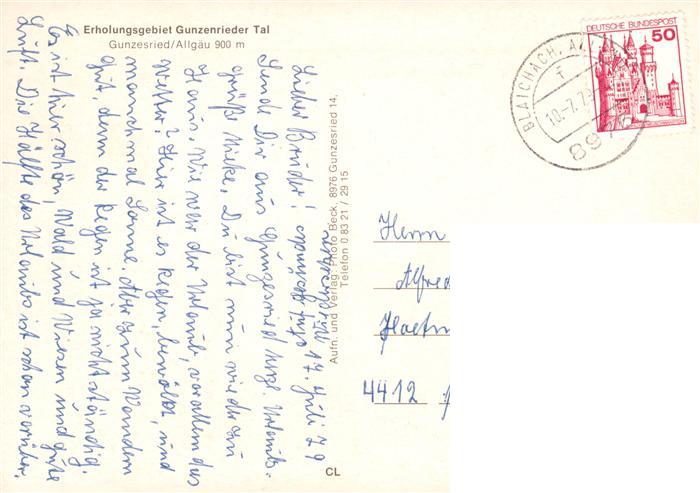 Erholungsgebiet Gunzenrieder Tal
Gunzesried/Allgäu 900 m
Gunzesried 17. Juli 79
Lieber Bruder!
Sende Dir aus Gunzesried herzl. Urlaubs-
grüße Mieke, Du bist nun wieder zu
Haus. Wie war der Urlaub, vor allem das
Wetter? Hier ist es Regen, bewölkt, und
manchmal Sonne. Aber zum Wandern
gut, denn der Regen ist ja nicht ständig.
Es ist hier schön, Wald und Wiesen und gute
Luft. Die Hälfte des Urlaubs ist schon vorüber.
Aufn. und Verlag: Photo Beck, 8976 Gunzesried 14,
Telefon 0 83 21 / 29 15
CL
DEUTSCHE BUNDESPOST
50
BLAICHACH, A
10.-7.7
897
Herrn
Alfred
4412